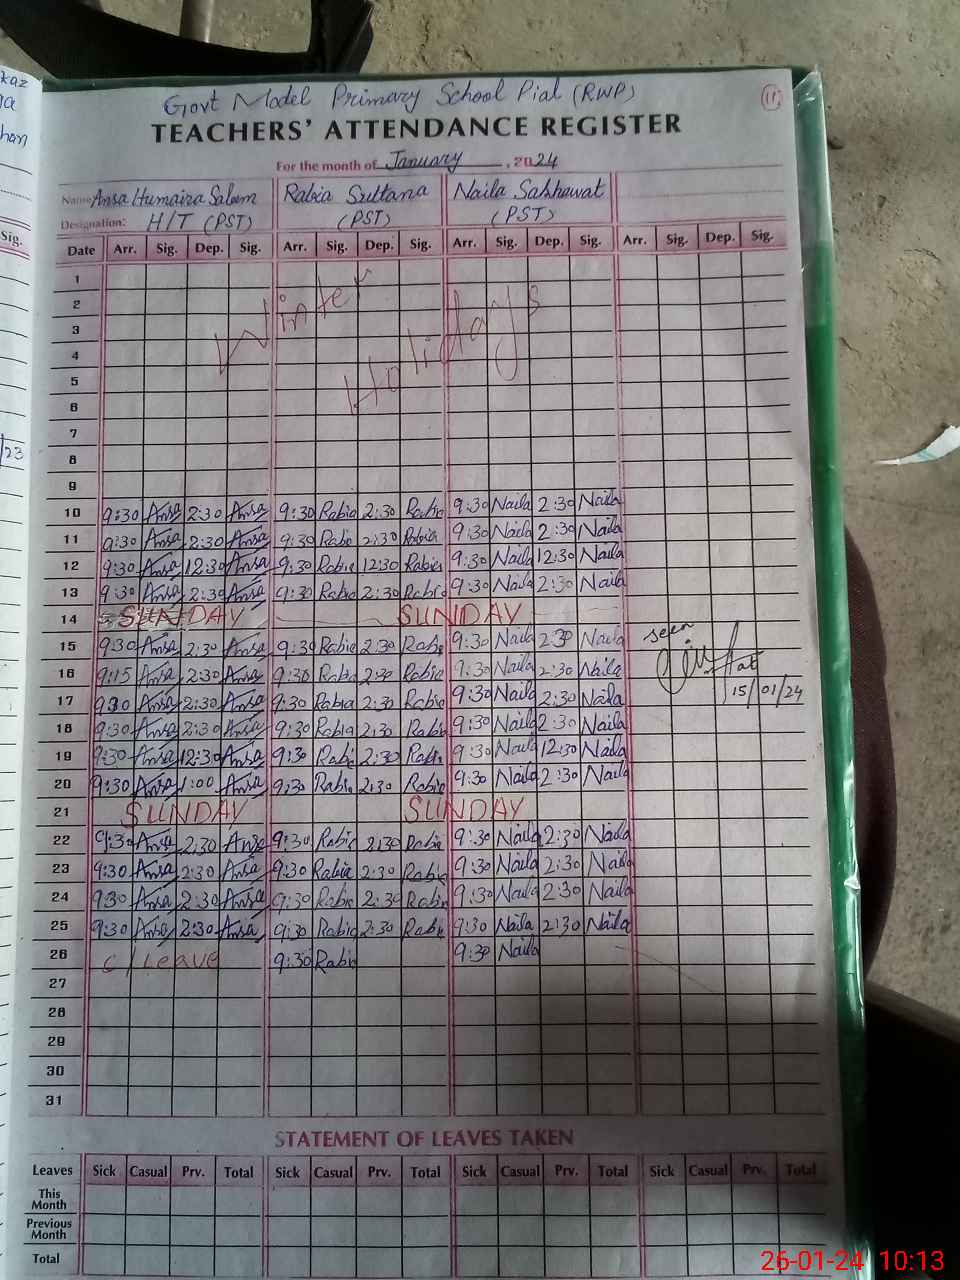 kaz
han
Sig.
/23
Govt Model Primary School Pial (RWP)
11
TEACHERS' ATTENDANCE REGISTER
For the month of January, 2024
Name Ansa Humaira Saleem Rabia Sultana Naila Sakhawat
Designation: H/T (PST) (PST) (PST)
Date Arr. Sig. Dep. Sig. Arr. Sig. Dep. Sig. Arr. Sig. Dep. Sig. Arr. Sig. Dep. Sig.
1
2
3
4
5
6
7
8
9
Winter
Holidays
10 9:30 Ansa 2:30 Ansa 9:30 Rabia 2:30 Rabia 9:30 Naila 2:30 Naila
11 9:30 Ansa 2:30 Ansa 9:30 Rabia 2:30 Rabia 9:30 Naila 2:30 Naila
12 9:30 Ansa 12:30 Ansa 9:30 Rabia 12:30 Rabia 9:30 Naila 12:30 Naila
13 9:30 Ansa 2:30 Ansa 9:30 Rabia 2:30 Rabia 9:30 Naila 2:30 Naila
14 SUNDAY SUNDAY
15 9:30 Ansa 2:30 Ansa 9:30 Rabia 2:30 Rabia 9:30 Naila 2:30 Naila
seen
16 9:15 Ansa 2:30 Ansa 9:30 Rabia 2:30 Rabia 9:30 Naila 2:30 Naila
17 9:30 Ansa 2:30 Ansa 9:30 Rabia 2:30 Rabia 9:30 Naila 2:30 Naila 15/01/24
18 9:30 Ansa 2:30 Ansa 9:30 Rabia 2:30 Rabia 9:30 Naila 2:30 Naila
19 9:30 Ansa 12:30 Ansa 9:30 Rabia 2:30 Rabia 9:30 Naila 12:30 Naila
20 9:30 Ansa 1:00 Ansa 9:30 Rabia 2:30 Rabia 9:30 Naila 2:30 Naila
21 SUNDAY SUNDAY
22 9:30 Ansa 2:30 Ansa 9:30 Rabia 2:30 Rabia 9:30 Naila 2:30 Naila
23 9:30 Ansa 2:30 Ansa 9:30 Rabia 2:30 Rabia 9:30 Naila 2:30 Naila
24 9:30 Ansa 2:30 Ansa 9:30 Rabia 2:30 Rabia 9:30 Naila 2:30 Naila
25 9:30 Ansa 2:30 Ansa 9:30 Rabia 2:30 Rabia 9:30 Naila 2:30 Naila
26 c/Leave 9:30 Rabia 9:30 Naila
27
28
29
30
31
STATEMENT OF LEAVES TAKEN
Leaves Sick Casual Prv. Total Sick Casual Prv. Total Sick Casual Prv. Total Sick Casual Prv. Total
This Month
Previous Month
Total
26-01-24 10:13